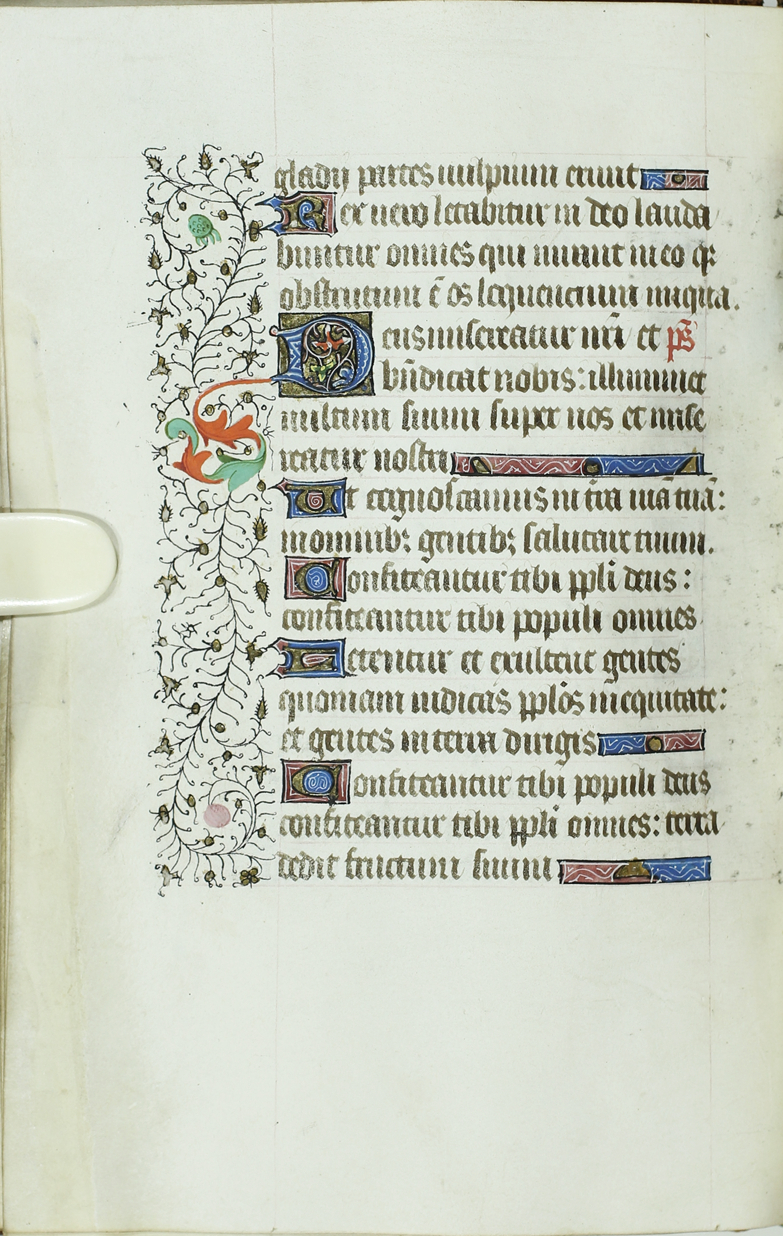 gladij partes uulpium erunt
Rex uero letabitur in deo lauda
buntur omnes qui iurant in eo qr
obstructum ē os loquencium iniqua.
Deus misereatur nr̄i et ps̄
bn̄dicat nobis: illuminet
uultum suum super nos et mise
reatur nostri
Ut cognoscamus in t̄ra uiā tuā:
in omnib; gentib; salutare tuum.
Confiteantur tibi pp̄li deus:
confiteantur tibi populi omnes
Letentur et exultent gentes
quoniam iudicas pp̄los in equitate:
et gentes in terra dirigis
Confiteantur tibi populi deus
confiteantur tibi pp̄li omnes: terra
dedit fructum suum